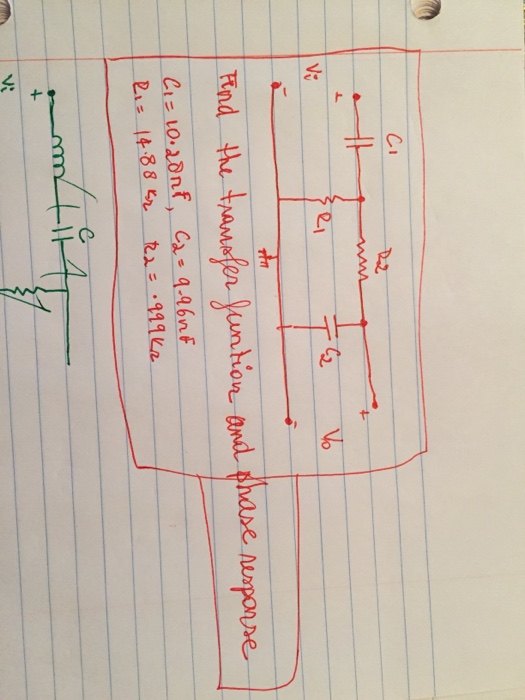 C1 R2
+ +
Vi R1 C2 Vo
- -
Find the transfer funtion and phase response
C1 = 10.28nF, C2 = 9.96nF
R1 = 14.88KΩ R2 = .999KΩ
C
+
Vi